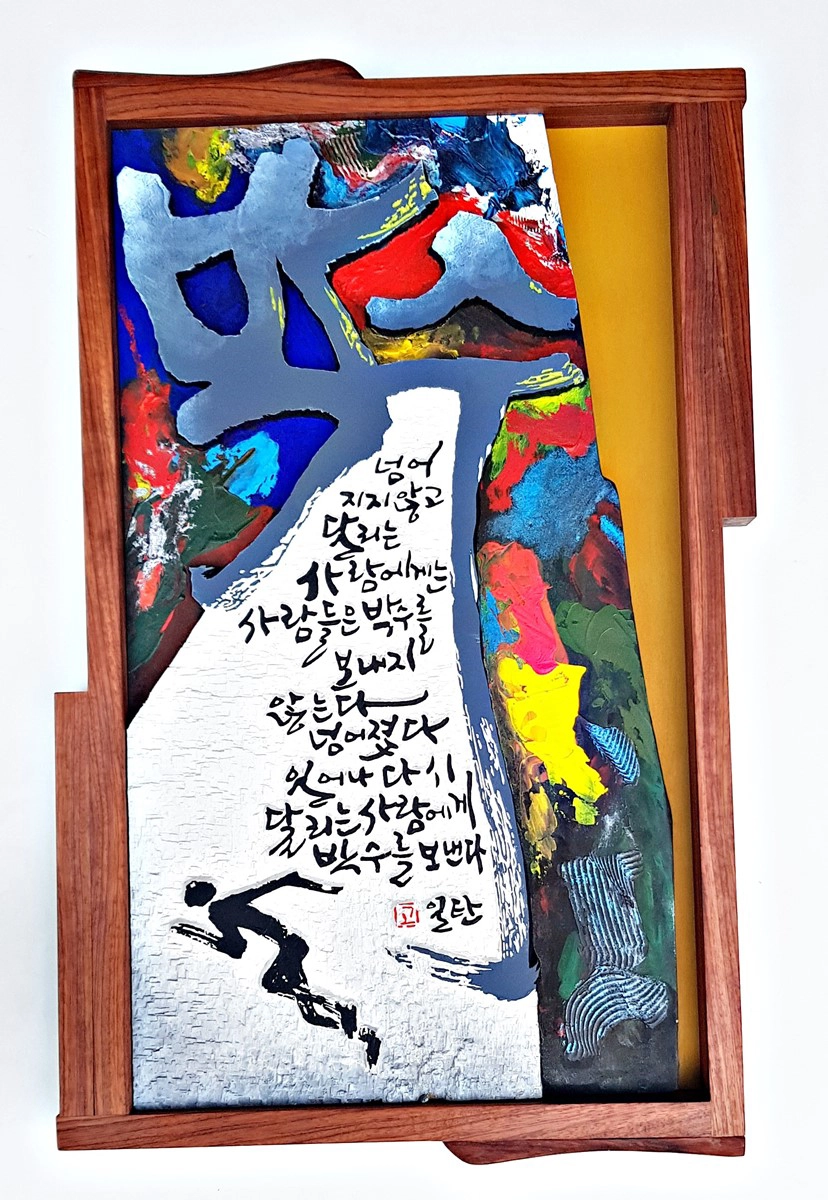 박수
넘어
지지않고
달리는
사람에게는
사람들은 박수를
보내지
않는다
넘어졌다
일어나 다시
달리는 사람에게
박수를 보낸다
일탄